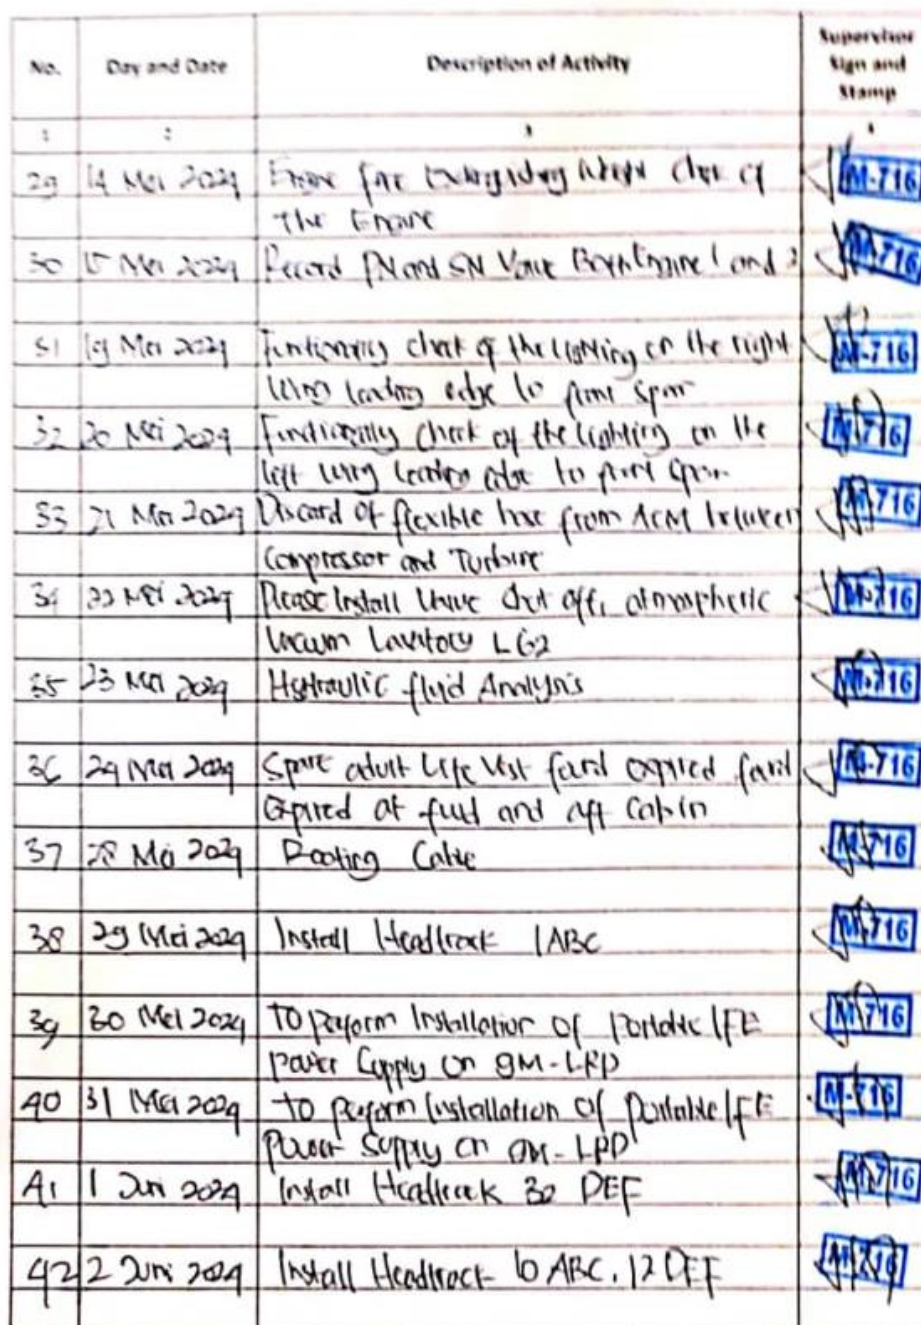 No. Day and Date Description of Activity Supervisor Sign and Stamp
1 2 3 4
29 14 Mei 2024 Engine fire Extinguishing weight check of M-716
The Engine
30 15 Mei 2024 Record PN and SN Valve Engine 1 and 2 M-716
31 19 Mei 2024 Functionally check of the lighting on the right M-716
wing leading edge to front spar
32 20 Mei 2024 Functionally check of the lighting on the M-716
left wing leading edge to front spar
33 21 Mei 2024 Discard of flexible hose from ACM between M-716
Compressor and Turbine
34 22 Mei 2024 Please Install Valve shut off, atmospheric M-716
Vacuum Lavatory LG2
35 23 Mei 2024 Hydraulic fluid Analysis M-716
36 24 Mei 2024 Spare adult Life Vest found expired found M-716
Expired at fwd and aft Cabin
37 28 Mei 2024 Rooting Cable M-716
38 29 Mei 2024 Install Headtrack 1ABC M-716
39 30 Mei 2024 To perform Installation of Portable IFE M-716
Power Supply on 9M-LRD
40 31 Mei 2024 To perform Installation of Portable IFE M-716
Power Supply on 9M-LRD
41 1 Juni 2024 Install Headtrack 32 DEF M-716
42 2 Juni 2024 Install Headtrack 10 ABC, 12 DEF M-716